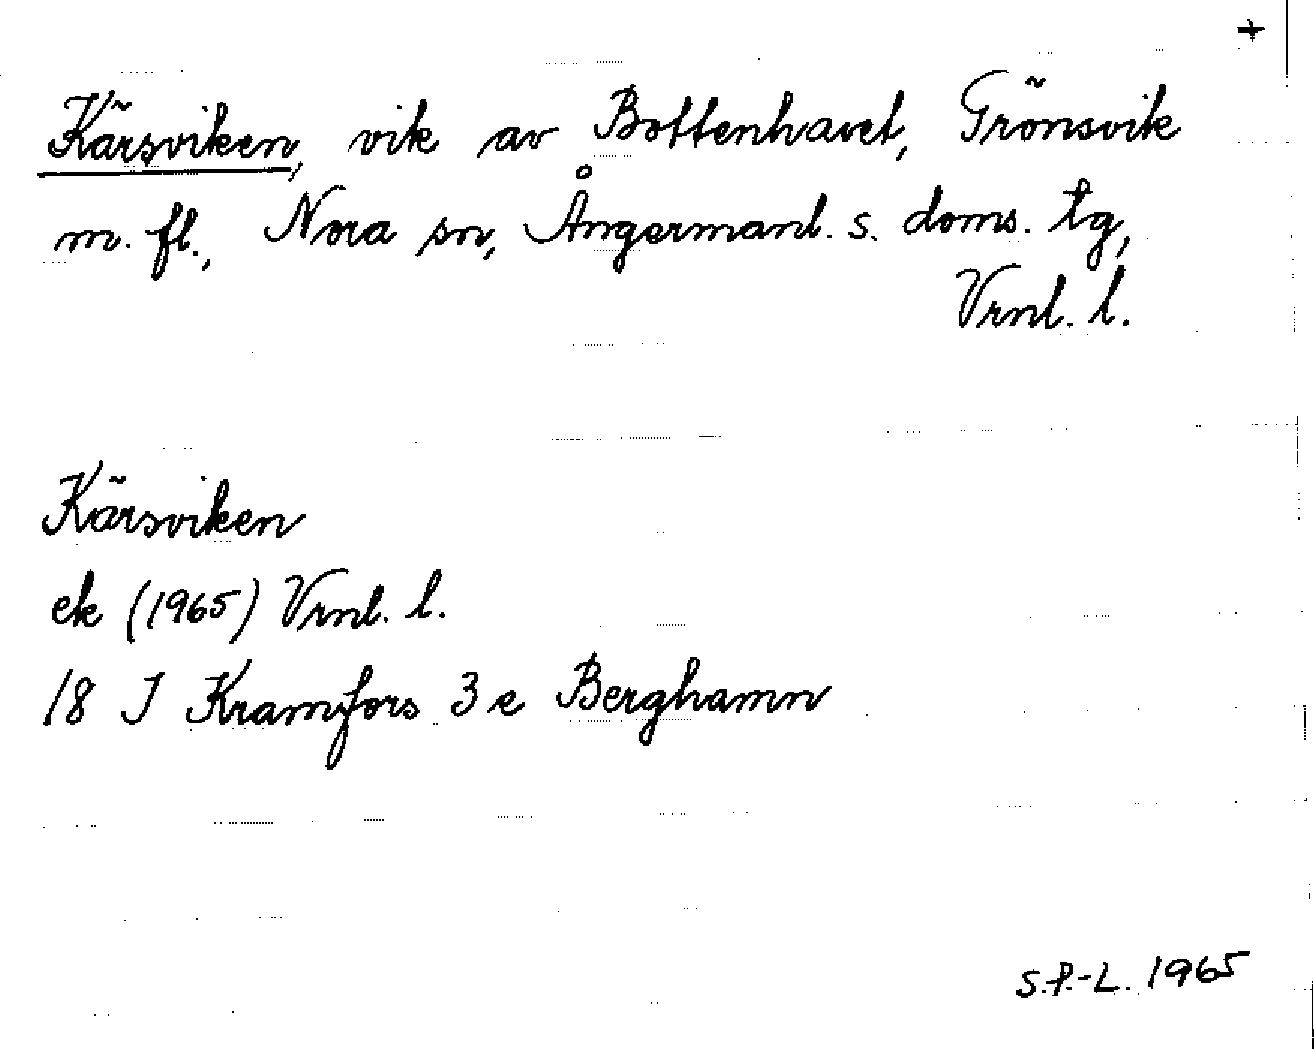 +
Kärsviken, vik av Bottenhavet, Grönsvik
m. fl., Nora sn, Ångermanl. s. doms. tg,
Vrnl. l.
Kärsviken
ek (1965) Vrnl. l.
18 I Kramfors 3 e Berghamn
S.P.-L. 1965